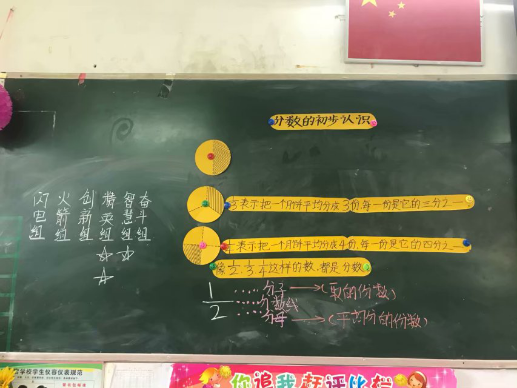 分数的初步认识
1/3表示把一个月饼平均分成3份,每一份是它的三分之一
1/4表示把一个月饼平均分成4份,每一份是它的四分之一
像1/2、1/3、1/4这样的数,都是分数
1 ……分子→(取的份数)
— ……分数线
2 ……分母→(平均分的份数)
闪电组
火箭组
创新组
精英组
智慧组
奋斗组
学校学生仪容仪表规范
你追我赶评比栏